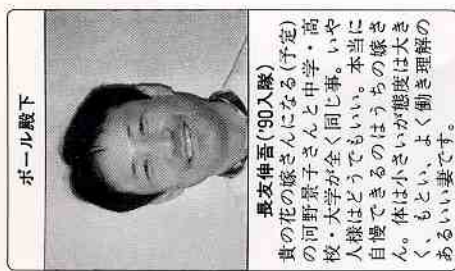 ポール殿下
長友伸吾('90入隊)
貴の花の嫁さんになる(予定)
の河野景子さんと中学・高
校・大学が全く同じ事。いや
人様はどうでもいい。本当に
自慢できるのはうちの嫁さ
ん。体は小さいが態度は大き
く、もとい、よく働き理解の
あるいい妻です。